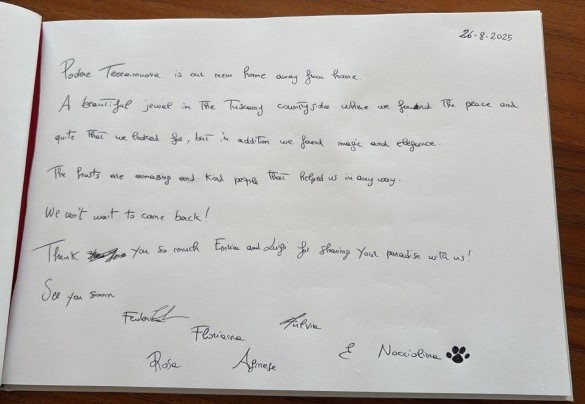 26.8.2025
Podere Terranuova is our new home away from home.
A beautiful jewel in the Tuscany countryside where we found the peace and
quite that we looked for, but in addition we found magic and elegance.
The hosts are amazing and kind people that helped us in any way.
We can't wait to come back!
Thank you so much Emma and Luigi for sharing your paradise with us!
See you soon
Fulvia
Floriana
Rosa Agnese E Nocciolina